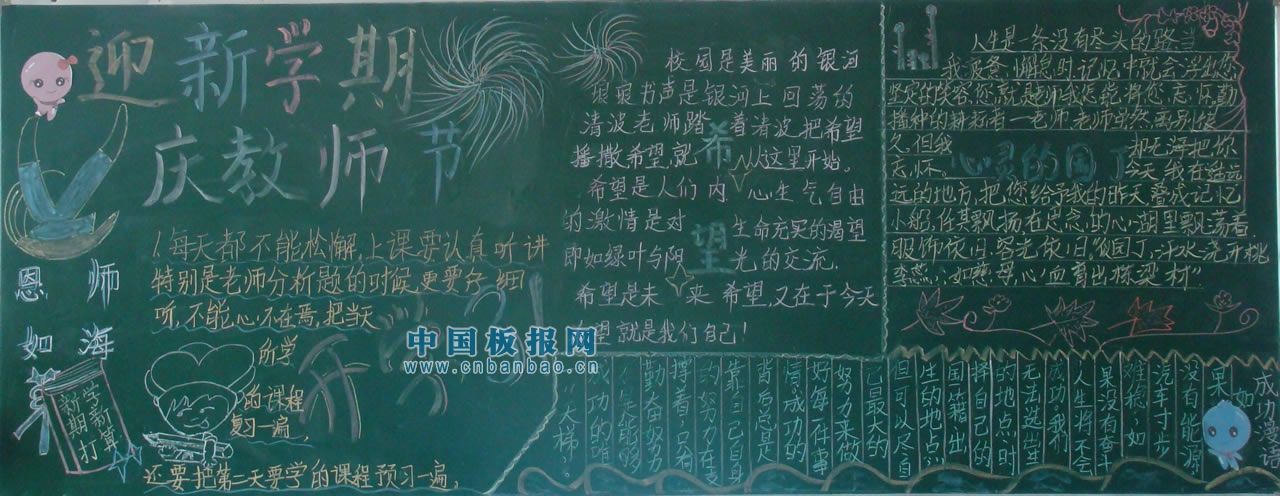 迎新学期
庆教师节
恩师
如海
1.每天都不能松懈,上课要认真听讲
特别是老师分析题的时候,更要仔细
听,不能心不在焉,把当天
所学
的课程
复习一遍,
还要把第二天要学的课程预习一遍,
新学
期新
打算
中国板报网
www.cnbanbao.cn
希望
校园是美丽的银河
琅琅书声是银河上回荡的
清波老师踏着清波,把希望
播撒希望,就从这里开始。
希望是人们内心生气自由
的激情是对生命充实的渴望
即如绿叶与阳光的交流.
希望是未来希望,又在于今天
希望就是我们自己!
心灵的园丁
人生是一条没有尽头的路,当
我疲惫、懈怠时,记忆中就会浮现您
坚实的笑容,您就是师我怎能将您忘怀,勤
播种的耕耘者—老师,老师虽然
久,但我却无法把你
忘怀。今天,我在遥远
远的地方,把您给予我的昨天叠成记忆
小船,任其飘扬在思念的心湖里飘荡着
服饰依旧容光依旧"园丁,汗水浇开桃
李燕,心如慈母,心血育出栋梁材"
成功漫语
如
果
没有能源
汽车寸步
难移,如
果没有奋斗
人生将不会
成功。我们
无法选择
的地点时
择自己的
国籍出
生的地点,
但可以尽自
己最大的
努力来做
好每一件事
情成功的
背后总是
靠自己自身
的努力在支
撑着,只有
勤奋努力
才能够
成功的唯
一大梯"